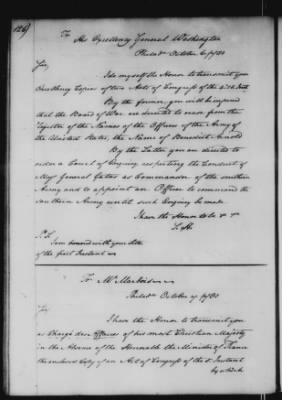 129
To His Excellency General Washington
Philada October 6. 1780
Sir,
I do myself the Honor to transmit you
Copies of two Acts of Congress of the 4 & 5 Inst
By the former, you will be inform'd
that the Board of War are directed to erase from the
Register of the Names of the Officers of the Army of
the United States, the Name of Benedict Arnold
By the Latter you are directed to
order a Court of Enquiry respecting the Conduct of
Majr General Gates as Commander of the southern
Army and to appoint an Officer to command the
southern Army until such Enquiry be made
I have the Honor to be &c &c
S. H.
P.S.
I am honored with your
of the first Instant
To Mr Marbois
Philada October 7 1780
Sir
I have the Honor to transmit you
as Chargé des Affaires of his most Christian Majesty
in the Absence of the Honorable the Minister of France
the enclosed Copy of an Act of Congress of the 5 Instant
by which